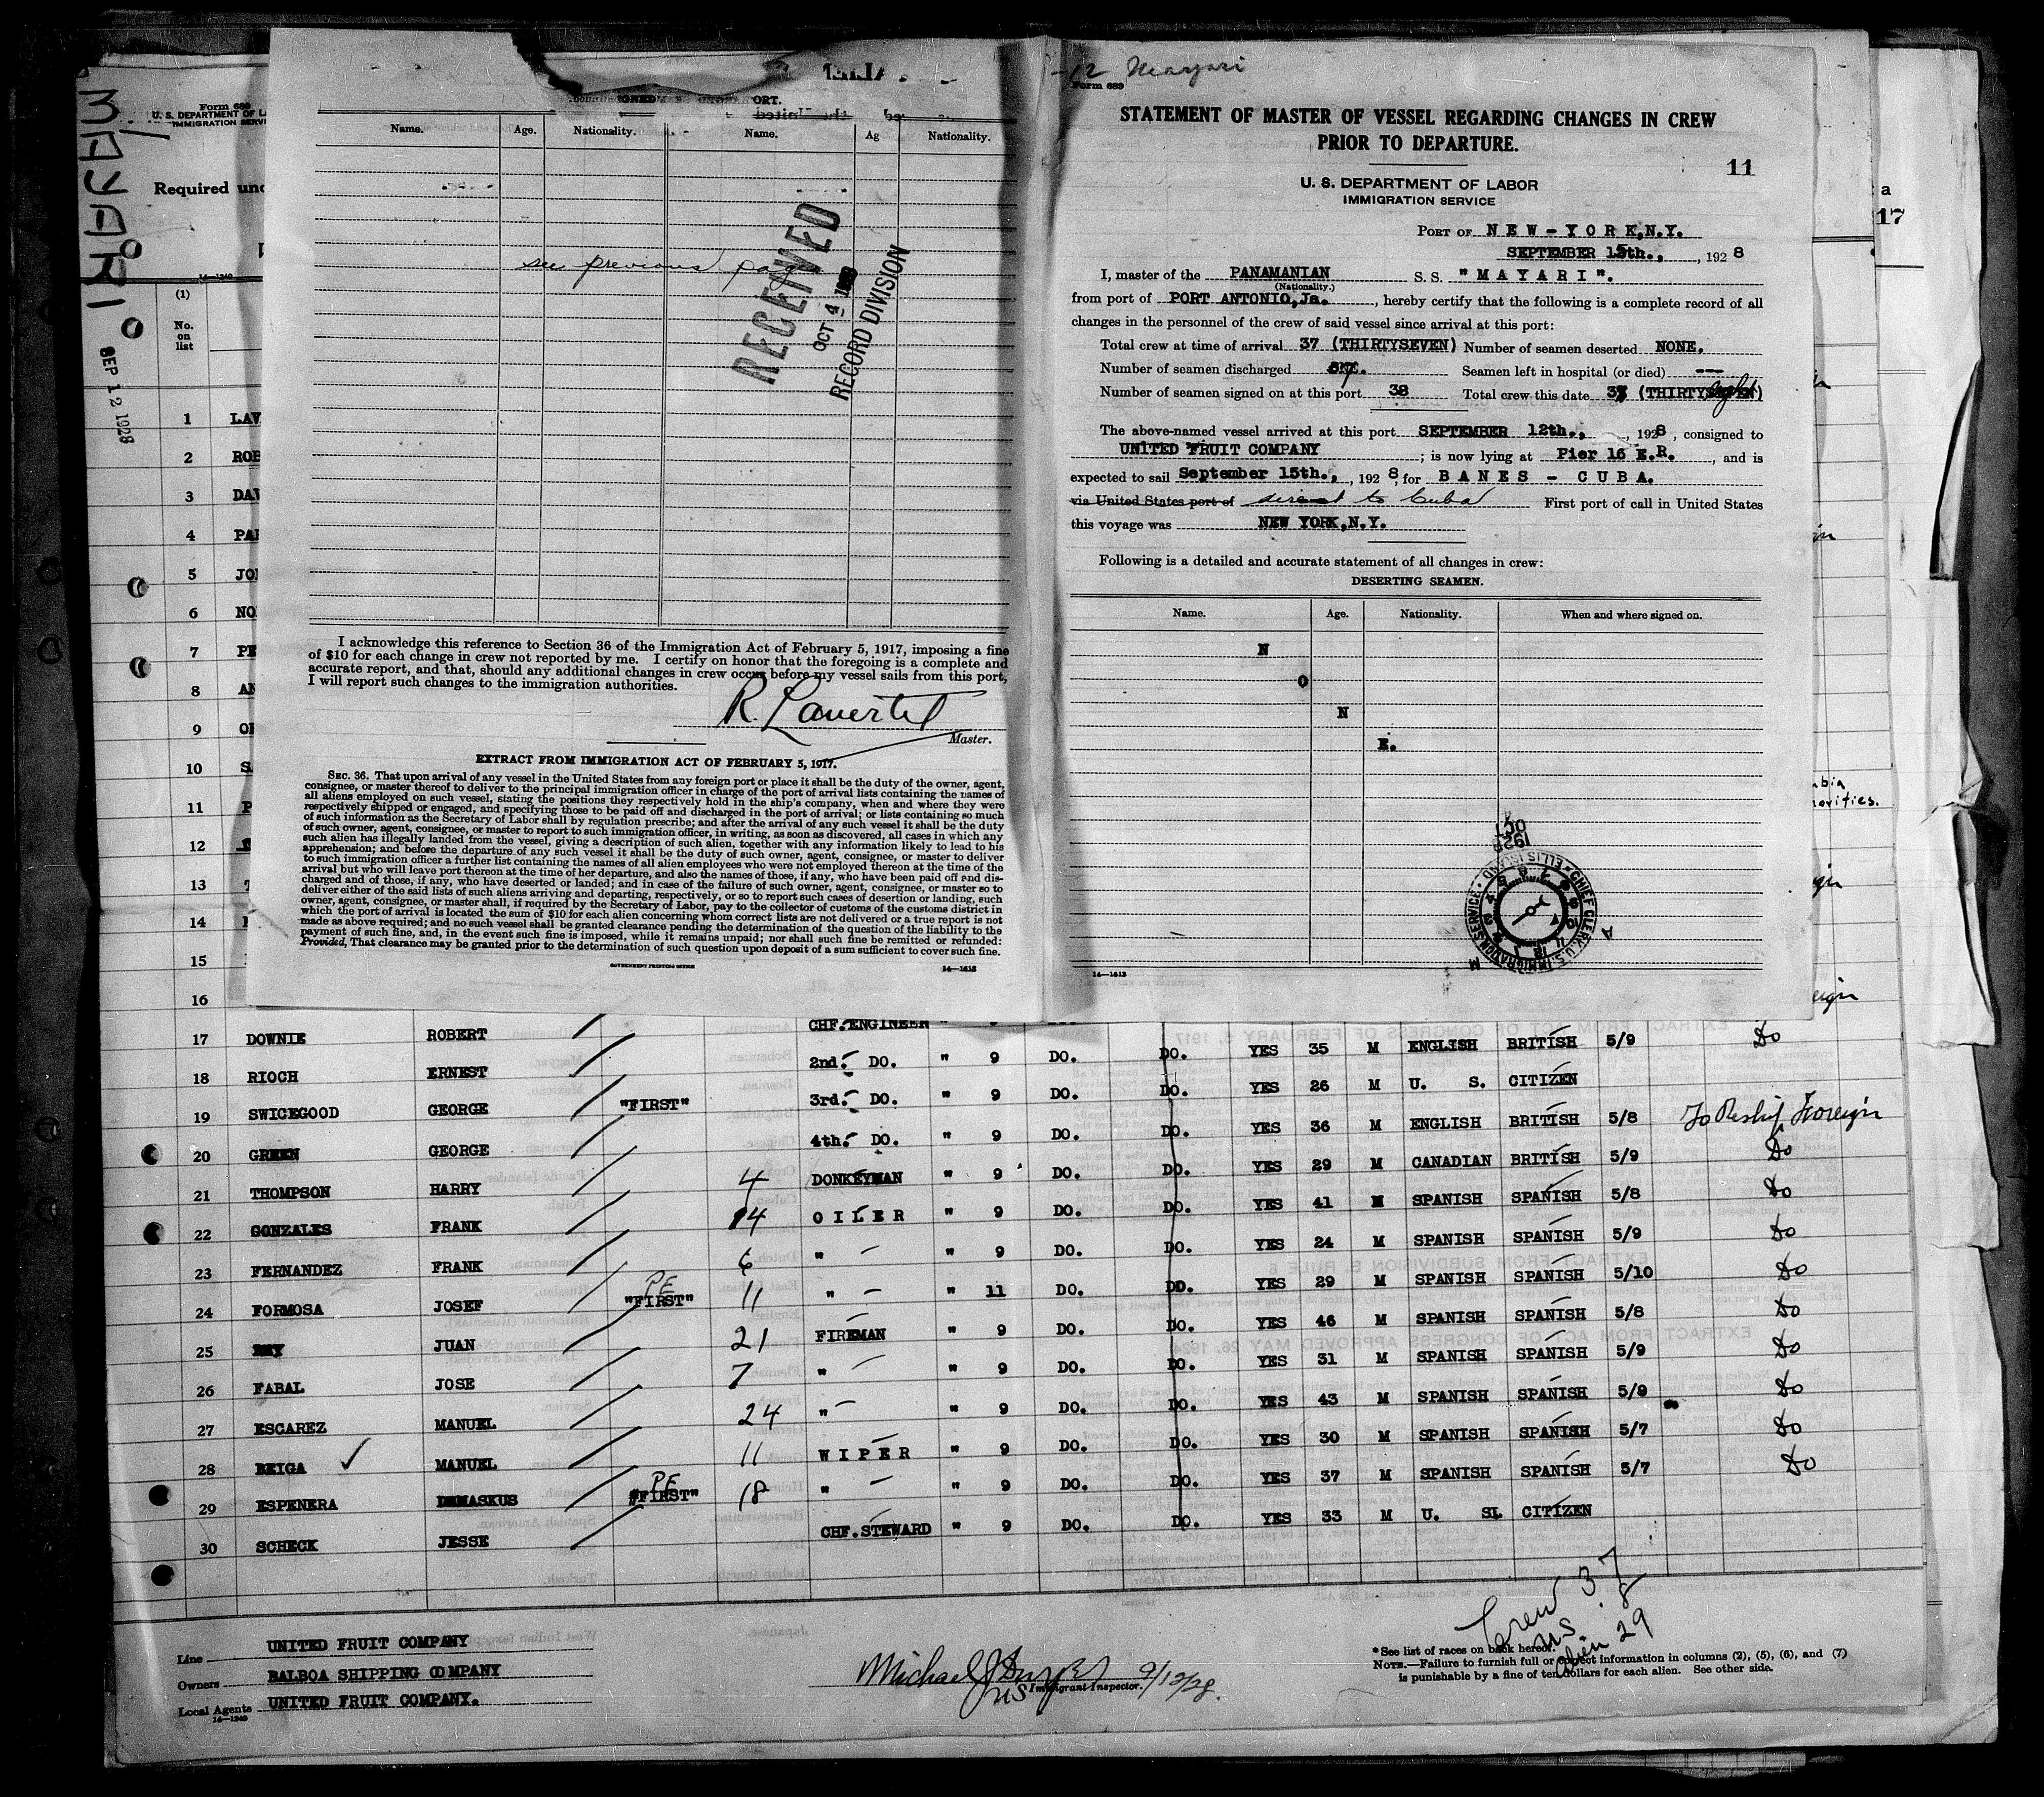 MAYARI
SEP 12 1928
Form 689
U. S. DEPARTMENT OF L
IMMIGRATION SERV
Required und
14—1240
(1)
No.
on
list
1 LAV
2 ROB
3 DAV
4 PAR
5 JO
6 NO
7 PE
8 AN
9
10 S
11 P
12
13
14
15
16
ORT.
Name. Age. Nationality. Name. Ag Nationality.
see previous page
RECEIVED
OCT 4
RECORD DIVISION
I acknowledge this reference to Section 36 of the Immigration Act of February 5, 1917, imposing a fine
of $10 for each change in crew not reported by me. I certify on honor that the foregoing is a complete and
accurate report, and that, should any additional changes in crew occur before my vessel sails from this port,
I will report such changes to the immigration authorities.
Master.
EXTRACT FROM IMMIGRATION ACT OF FEBRUARY 5, 1917.
SEC. 36. That upon arrival of any vessel in the United States from any foreign port or place it shall be the duty of the owner, agent,
consignee, or master thereof to deliver to the principal immigration officer in charge of the port of arrival lists containing the names of
all aliens employed on such vessel, stating the positions they respectively hold in the ship's company, when and where they were
respectively shipped or engaged, and specifying those to be paid off and discharged in the port of arrival; or lists containing so much
of such information as the Secretary of Labor shall by regulation prescribe; and after the arrival of any such vessel it shall be the duty
of such owner, agent, consignee, or master to report to such immigration officer, in writing, as soon as discovered, all cases in which any
such alien has illegally landed from the vessel, giving a description of such alien, together with any information likely to lead to his
apprehension; and before the departure of any such vessel it shall be the duty of such owner, agent, consignee, or master to deliver
to such immigration officer a further list containing the names of all alien employees who were not employed thereon at the time of the
arrival but who will leave port thereon at the time of her departure, and also the names of those, if any, who have been paid off and dis-
charged and of those, if any, who have deserted or landed; and in case of the failure of such owner, agent, consignee, or master so to
deliver either of the said lists of such aliens arriving and departing, respectively, or so to report such cases of desertion or landing, such
owner, agent, consignee, or master shall, if required by the Secretary of Labor, pay to the collector of customs of the customs district in
which the port of arrival is located the sum of $10 for each alien concerning whom correct lists are not delivered or a true report is not
made as above required; and no such vessel shall be granted clearance pending the determination of the question of the liability to the
payment of such fine, and, in the event such fine is imposed, while it remains unpaid; nor shall such fine be remitted or refunded:
Provided, That clearance may be granted prior to the determination of such question upon deposit of a sum sufficient to cover such fine.
GOVERNMENT PRINTING OFFICE 14—1613
-12 Mayari
Form 689
STATEMENT OF MASTER OF VESSEL REGARDING CHANGES IN CREW
PRIOR TO DEPARTURE.
11
U. S. DEPARTMENT OF LABOR
IMMIGRATION SERVICE
PORT OF NEW-YORK,N.Y.
SEPTEMBER 15th., , 192 8
I, master of the PANAMANIAN S. S. "MAYARI".
(Nationality.)
from port of PORT ANTONIO,Ja. , hereby certify that the following is a complete record of all
changes in the personnel of the crew of said vessel since arrival at this port:
Total crew at time of arrival 37 (THIRTYSEVEN) Number of seamen deserted NONE.
Number of seamen discharged 37. Seamen left in hospital (or died) ---
Number of seamen signed on at this port 38 Total crew this date 38 (THIRTY eight)
The above-named vessel arrived at this port SEPTEMBER 12th., , 1928 , consigned to
UNITED FRUIT COMPANY ; is now lying at Pier 16 E.R. , and is
expected to sail September 15th., , 192 8, for BANES - CUBA.
via United States port of direct to Cuba First port of call in United States
this voyage was NEW YORK,N.Y.
Following is a detailed and accurate statement of all changes in crew:
DESERTING SEAMEN.
Name. Age. Nationality. When and where signed on.
N
O
N
E.
OCT
1928
CHIEF CLERK, U.S. IMMIGRATION SERVICE • ELLIS ISLAND
14—1613
a
17
bia
orities.
17 DOWNIE ROBERT CHF. ENGINEER
18 RIOCH ERNEST 2nd. DO. " 9 DO. DO. YES 35 M ENGLISH BRITISH 5/9 Do
19 SWICEGOOD GEORGE "FIRST" 3rd. DO. " 9 DO. DO. YES 26 M U. S. CITIZEN
20 GREEN GEORGE 4th. DO. " 9 DO. DO. YES 36 M ENGLISH BRITISH 5/8 To Reship Foreign
21 THOMPSON HARRY 4 DONKEYMAN " 9 DO. DO. YES 29 M CANADIAN BRITISH 5/9 Do
22 GONZALES FRANK 14 OILER " 9 DO. DO. YES 41 M SPANISH SPANISH 5/8 Do
23 FERNANDEZ FRANK 6 " " 9 DO. DO. YES 24 M SPANISH SPANISH 5/9 Do
24 FORMOSA JOSEF PE "FIRST" 11 " " 11 DO. DO. YES 29 M SPANISH SPANISH 5/10 Do
25 REY JUAN 21 FIREMAN " 9 DO. DO. YES 46 M SPANISH SPANISH 5/8 Do
26 FABAL JOSE 7 " " 9 DO. DO. YES 31 M SPANISH SPANISH 5/9 Do
27 ESCAREZ MANUEL 24 " " 9 DO. DO. YES 43 M SPANISH SPANISH 5/9 Do
28 BEIGA MANUEL 11 WIPER " 9 DO. DO. YES 30 M SPANISH SPANISH 5/7 Do
29 ESPENERA DAMASKUS PE "FIRST" 18 " " 9 DO. DO. YES 37 M SPANISH SPANISH 5/7 Do
30 SCHECK JESSE CHF.STEWARD " 9 DO. DO. YES 33 M U. S. CITIZEN
Crew 37
US 8
Alien 29
Line UNITED FRUIT COMPANY
Owners BALBOA SHIPPING COMPANY
Local Agents UNITED FRUIT COMPANY.
14—1240
Michael J
Immigrant Inspector. 9/12/28.
* See list of races on back hereof.
NOTE.—Failure to furnish full or correct information in columns (2), (5), (6), and (7)
is punishable by a fine of ten dollars for each alien. See other side.